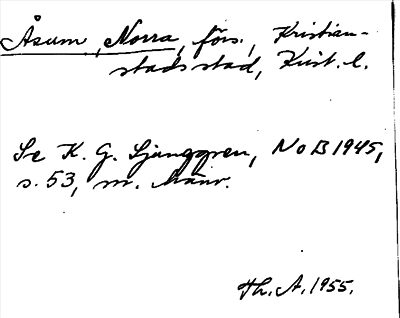 Åsum, Norra, förs., Kristian-
stads stad, Krist. l.
Se K. G. Ljunggren, NoB 1945,
s. 53, m. hänv.
Th. A. 1955.